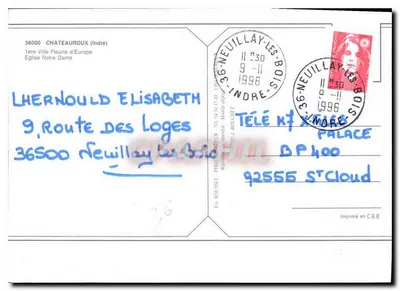 36000 CHATEAUROUX (Indre)
1ère Ville Fleurie d'Europe
Eglise Notre Dame
LHERNOULD ELISABETH
9, ROUTE DES LOGES
36500 Neuillay les Bois
36-NEUILLAY-LES-BOIS
11H30
9-11
1996
INDRE
36-NEUILLAY-LES-BOIS
11H30
9-11
1996
INDRE
TÉLÉ K7
PALACE
BP 400
92555 ST Cloud
Imprimé en C.E.E.